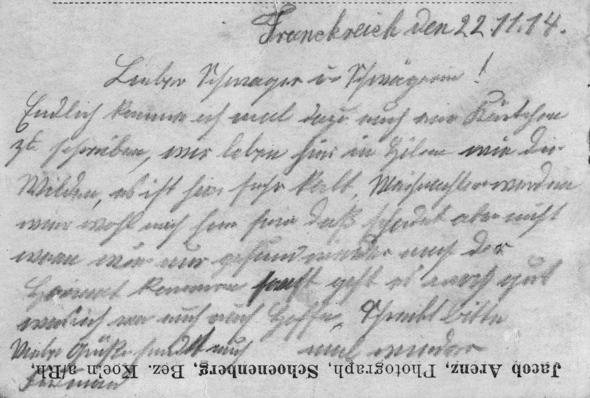 Franckreich den 22.11.14.
Lieber Schwager u Schwägerin!
Endlich komme ich mal dazu auch ein Kärtchen
zu schreiben, wir leben hier in Höhlen wie die
Wilden, es ist hier sehr kalt, Weihnachten werden
wir wohl noch hier sein daß schadet aber nicht
wenn wir nur gesund wieder nach der
Heimat kommen sonst geht es noch gut
was ich von euch auch hoffe, Schreibt bitte
mal wieder
Viele Grüße sendet euch
Jacob Arenz, Photograph, Schoenenberg, Bez. Koe'n a/Rh.